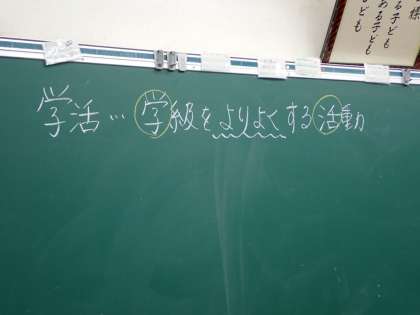 学活…学級をよりよくする活動
様
ある子ども
子ども